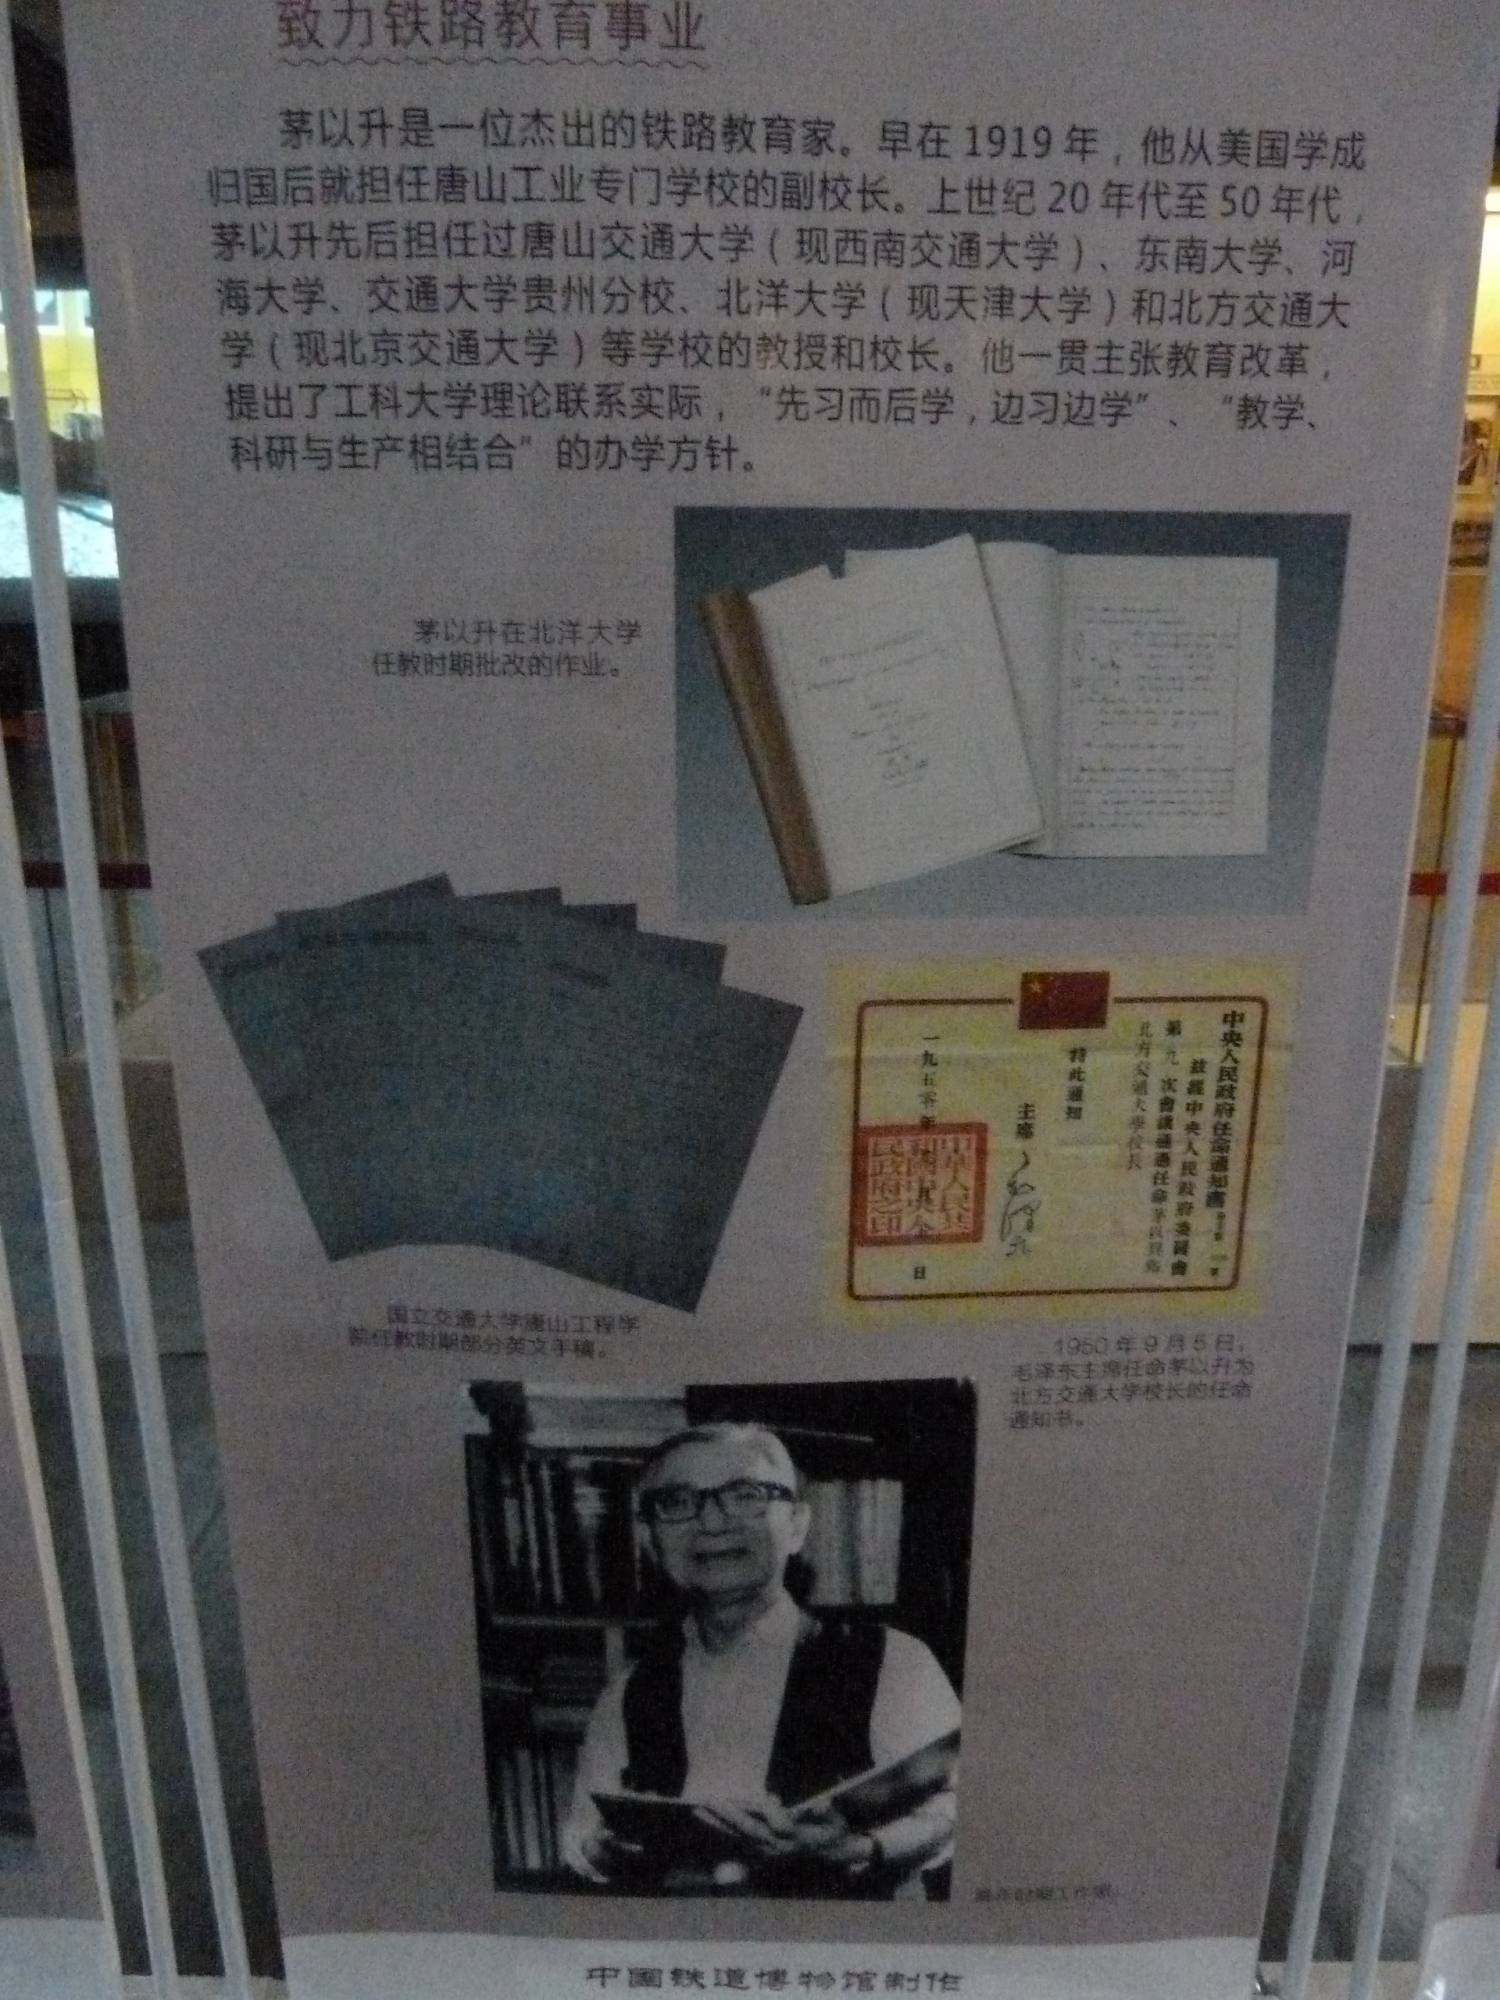 致力铁路教育事业
茅以升是一位杰出的铁路教育家。早在 1919 年，他从美国学成
归国后就担任唐山工业专门学校的副校长。上世纪 20 年代至 50 年代，
茅以升先后担任过唐山交通大学（现西南交通大学）、东南大学、河
海大学、交通大学贵州分校、北洋大学（现天津大学）和北方交通大
学（现北京交通大学）等学校的教授和校长。他一贯主张教育改革，
提出了工科大学理论联系实际，“先习而后学，边习边学”、“教学、
科研与生产相结合”的办学方针。
茅以升在北洋大学
任教时期批改的作业。
中央人民政府任命通知書
茲經中央人民政府委員會
第九次會議通過任命茅以昇為
北方交通大學校長
特此通知
主席
一九五零年 日
中華人民共
和國中央人
民政府之印
国立交通大学唐山工程学
院任教时期部分英文手稿。
1950 年 9 月 5 日，
毛泽东主席任命茅以升为
北方交通大学校长的任命
通知书。
中國铁道博物馆制作